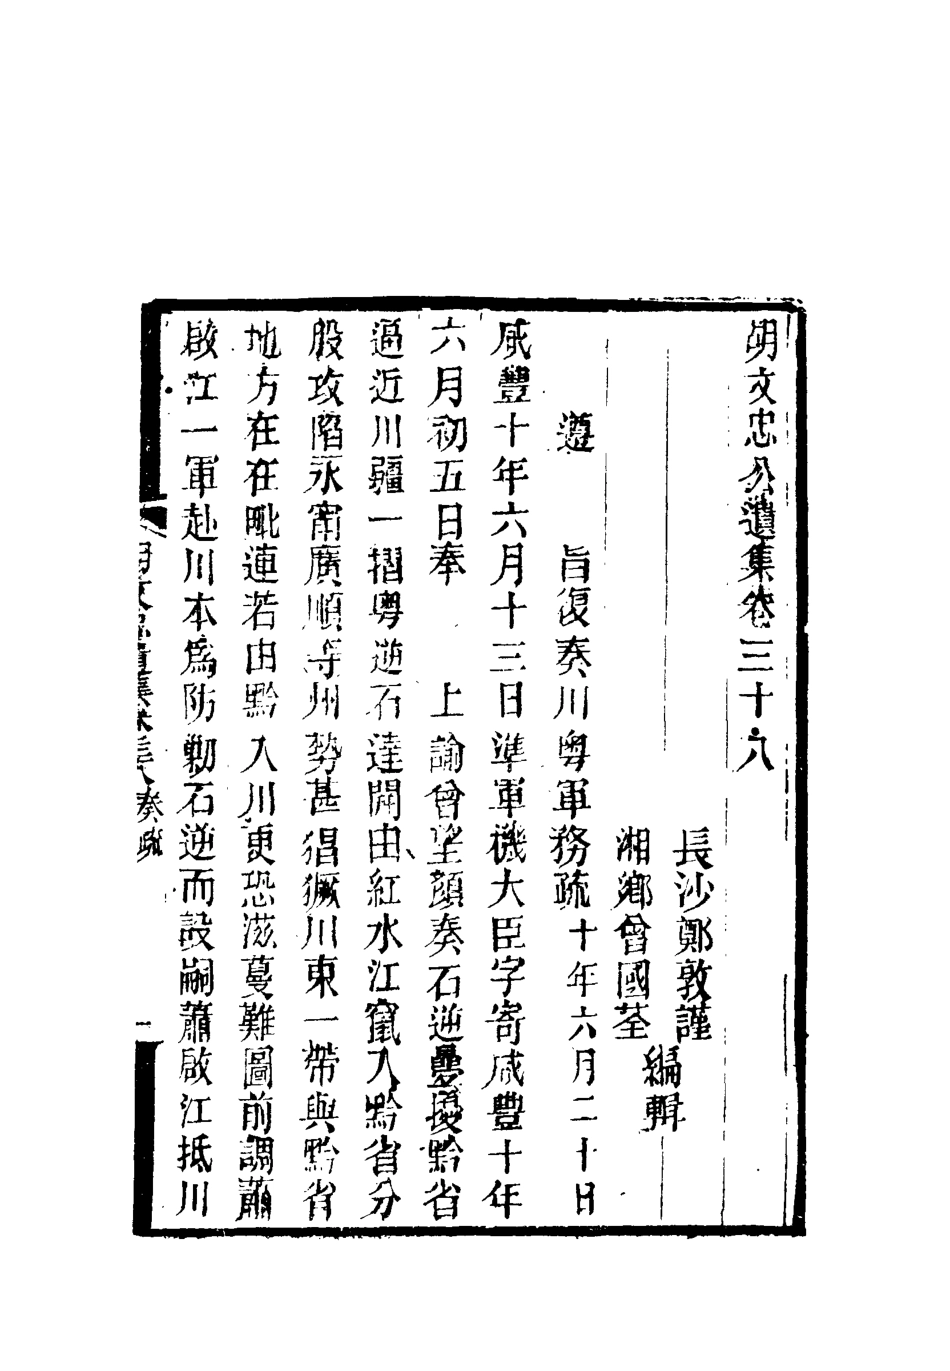 胡文忠公遺集卷三十八
長沙鄭敦謹
湘鄉曾國荃
編輯
遵 旨復奏川粵軍務疏 十年六月二十日
咸豐十年六月十三日準軍機大臣字寄咸豐十年
六月初五日奉 上諭曾望顏奏石逆疊擾黔省
逼近川疆一摺粵逆石達開由紅水江竄入黔省分
股攻陷永甯廣順等州勢甚猖獗川東一帶與黔省
地方在在毗連若由黔入川更恐滋蔓難圖前調蕭
啟江一軍赴川本爲防勦石逆而設嗣蕭啟江抵川
胡文忠遺集卷三八奏疏
一